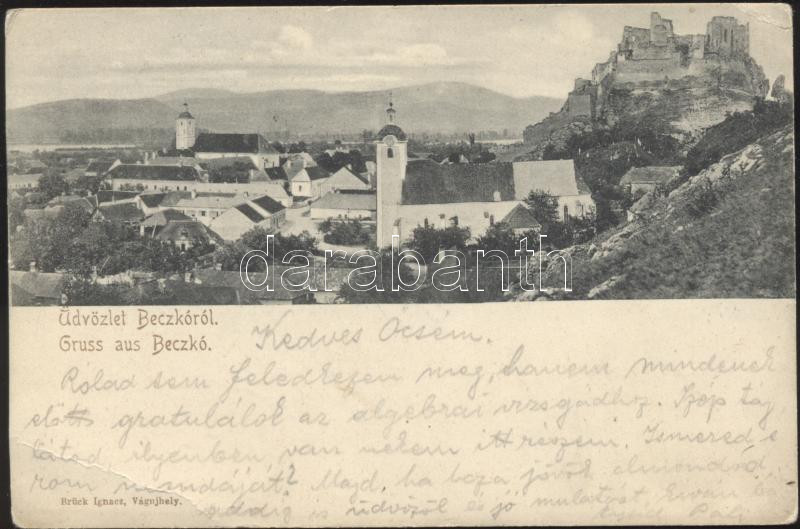 darabanth
Üdvözlet Beczkóról.
Gruss aus Beczkó.
Kedves Öcsém.
Rólad sem feledkezem meg, hanem mindenek
előtt gratulálok az algebrai vizsgádhoz. Szép táj
ilyenben, van nekem itt részem. Ismered e
róm mondáját? Majd, ha haza jövök elmondod
addig is üdvözöl és jó mulatást kíván
Brück Ignacz, Vágujhely.